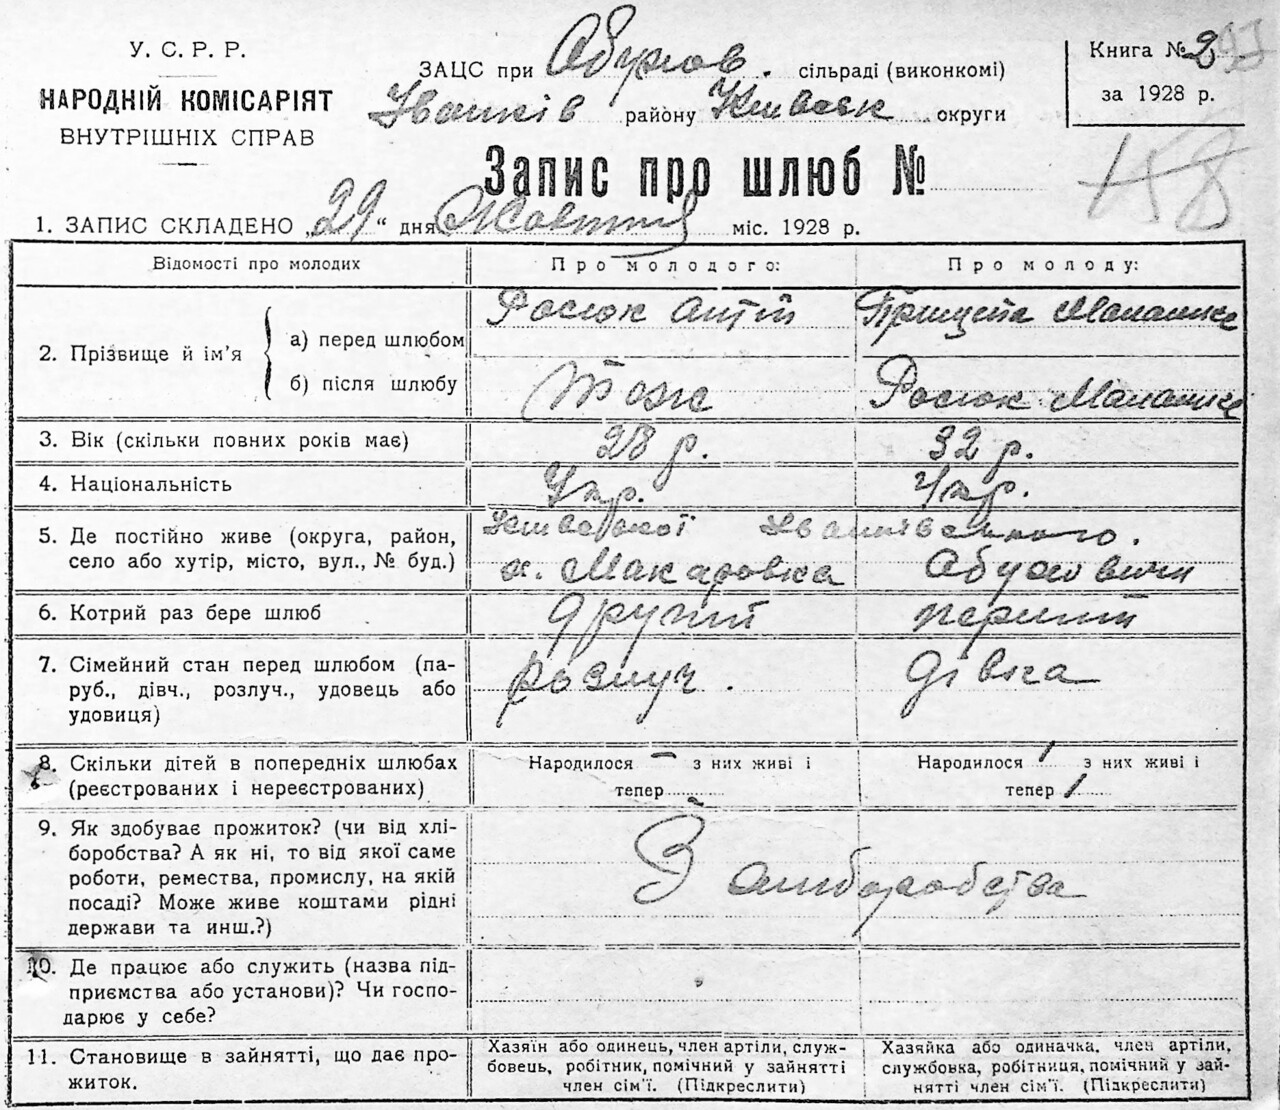 У. С. Р. Р.
НАРОДНІЙ КОМІСАРІЯТ
ВНУТРІШНІХ СПРАВ
ЗАЦС при Абухов. сільраді (виконкомі)
Іванків району Київськ округи
Книга № 2
за 1928 р.
48
Запис про шлюб №
1. ЗАПИС СКЛАДЕНО „29“ дня Жовтня міс. 1928 р.
Відомості про молодих Про молодого: Про молоду:
2. Прізвище й ім’я
а) перед шлюбом Росюк Антін Прищепа Маланка
б) після шлюбу Тож Росюк Маланка
3. Вік (скільки повних років має) 28 р. 32 р.
4. Національність Укр. Укр.
5. Де постійно живе (округа, район, Київської Іванківського.
село або хутір, місто, вул., № буд.) х. Макаровка Обуховичи
6. Котрий раз бере шлюб другий перший
7. Сімейний стан перед шлюбом (па-
руб., дівч., розлуч., удовець або розлуч. дівка
удовиця)
8. Скільки дітей в попередніх шлюбах Народилося – з них живі і Народилося 1 з них живі і
(реєстрованих і нереєстрованих) тепер - тепер 1
9. Як здобуває прожиток? (чи від хлі-
боробства? А як ні, то від якої саме
роботи, ремества, промислу, на якій З хліборобства
посаді? Може живе коштами рідні
держави та инш.?)
10. Де працює або служить (назва під-
приємства або установи)? Чи госпо-
дарює у себе?
11. Становище в зайнятті, що дає про-
житок.
Хазяїн або одинець, член артіли, служ-
бовець, робітник, помічний у зайнятті
член сім’ї. (Підкреслити)
Хазяйка або одиначка, член артіли,
службовка, робітниця, помічний у зай-
нятті член сім’ї. (Підкреслити)